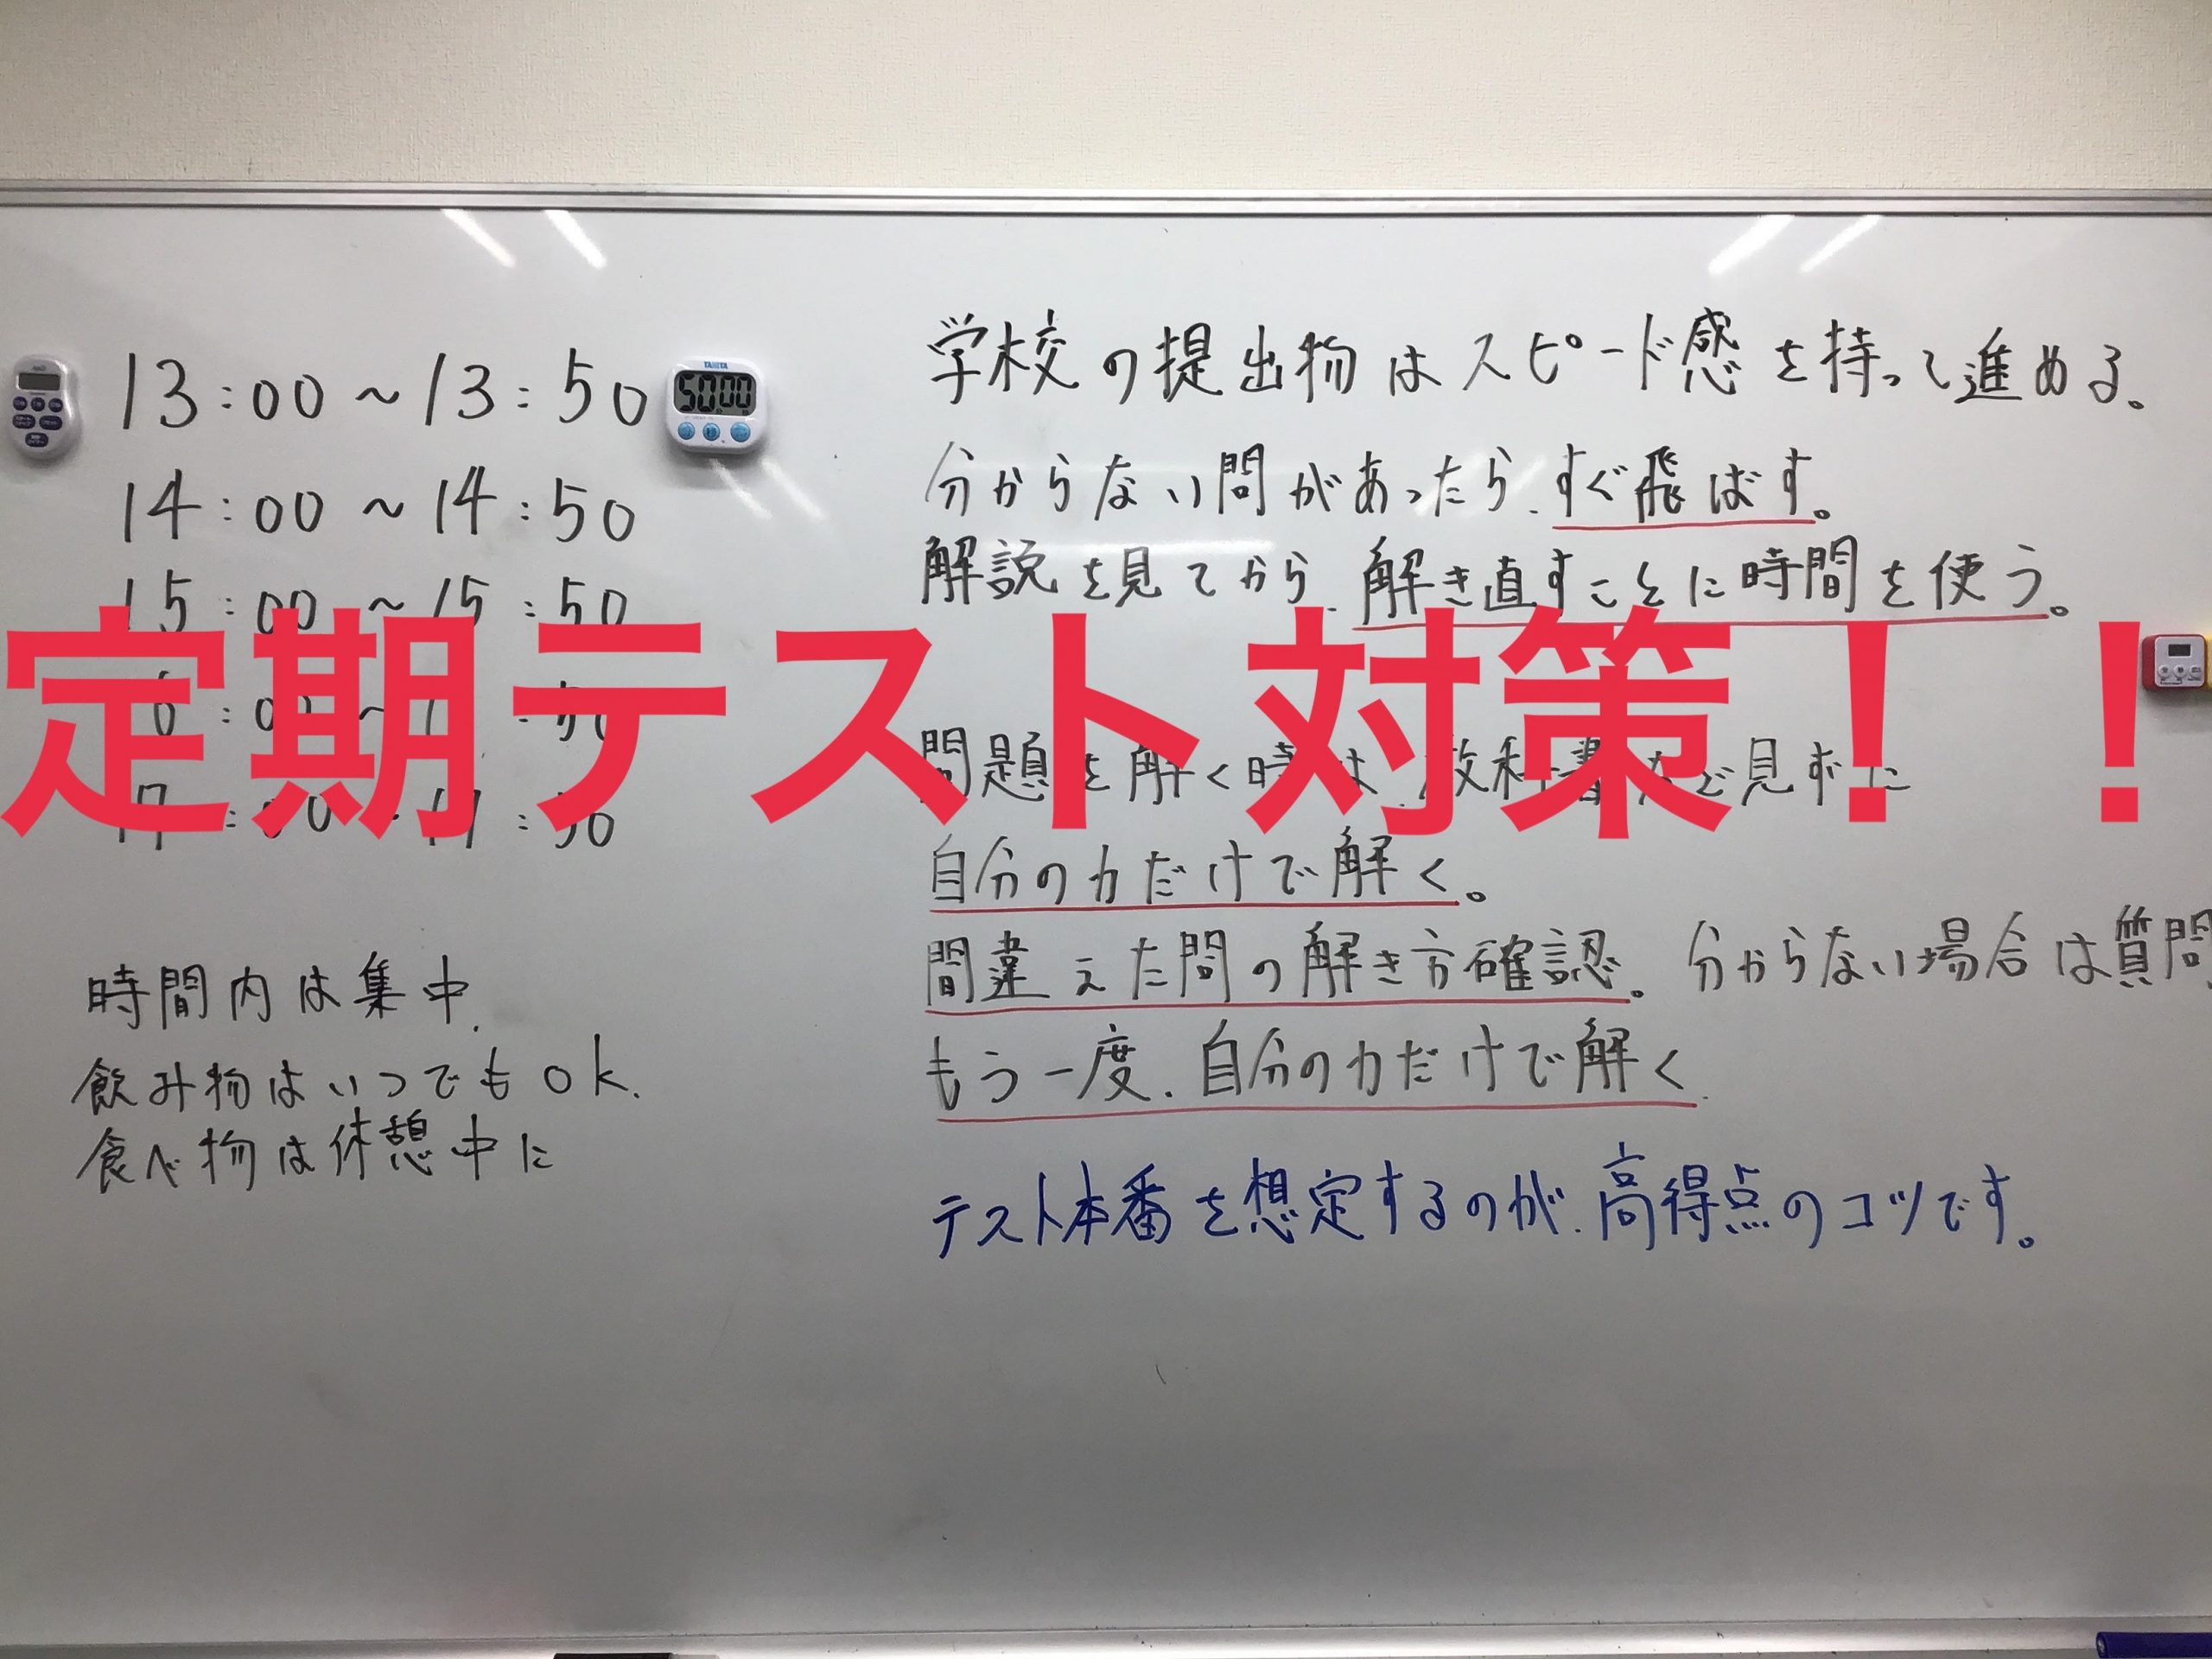 13:00～13:50
TANITA
50:00
14:00～14:50
15:00～15:50
:00～:50
17:00～17:50
時間内は集中.
飲み物はいつでもok.
食べ物は休憩中に
学校の提出物はスピード感を持って進める。
分からない問があったら、すぐ飛ばす。
解説を見てから、解き直すことに時間を使う。
定期テスト対策！！
問題を解く時は、教科書など見ずに
自分の力だけで解く。
間違えた問の解き方確認。分からない場合は質問
もう一度、自分の力だけで解く.
テスト本番を想定するのが、高得点のコツです。